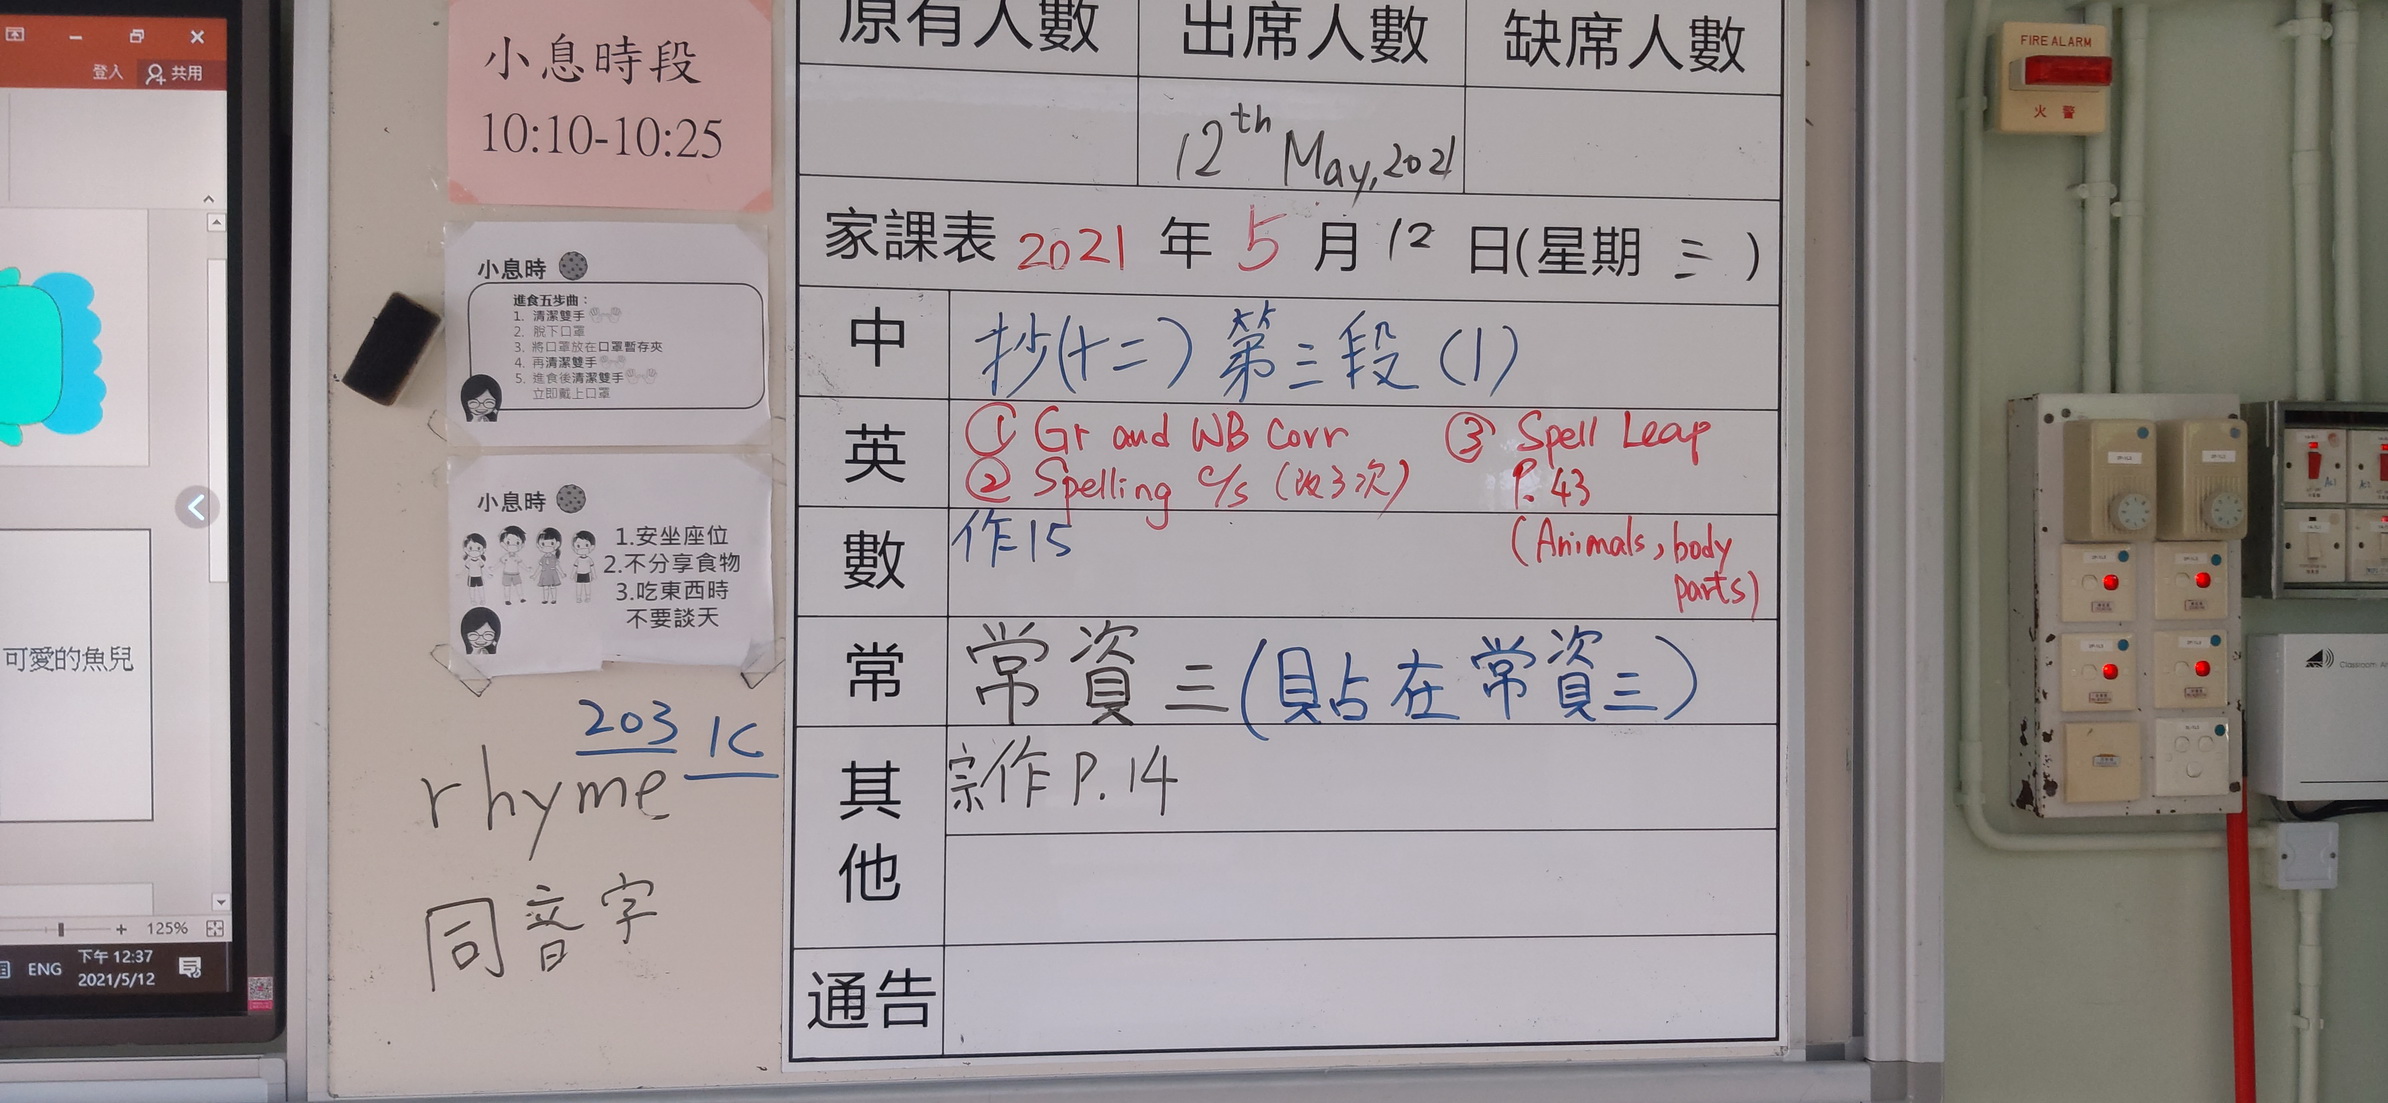 登入 共用
可愛的魚兒
125%
ENG
下午 12:37
2021/5/12
小息時段
10:10-10:25
小息時
進食五步曲：
1. 清潔雙手
2. 脫下口罩
3. 將口罩放在口罩暫存夾
4. 再清潔雙手
5. 進食後清潔雙手
立即戴上口罩
小息時
1.安坐座位
2.不分享食物
3.吃東西時
不要談天
203 1C
rhyme
同音字
原有人數 出席人數 缺席人數
12th May, 2021
家課表 2021 年 5 月 12 日(星期 三)
中 抄(十二) 第三段 (1)
英 ① Gr and WB Corr ③ Spell Leap
② Spelling c/s (改3次) P. 43
(Animals, body
parts)
數 作15
常 常資三(貼在常資三)
其他 宗作 P.14
通告
FIRE ALARM
火警